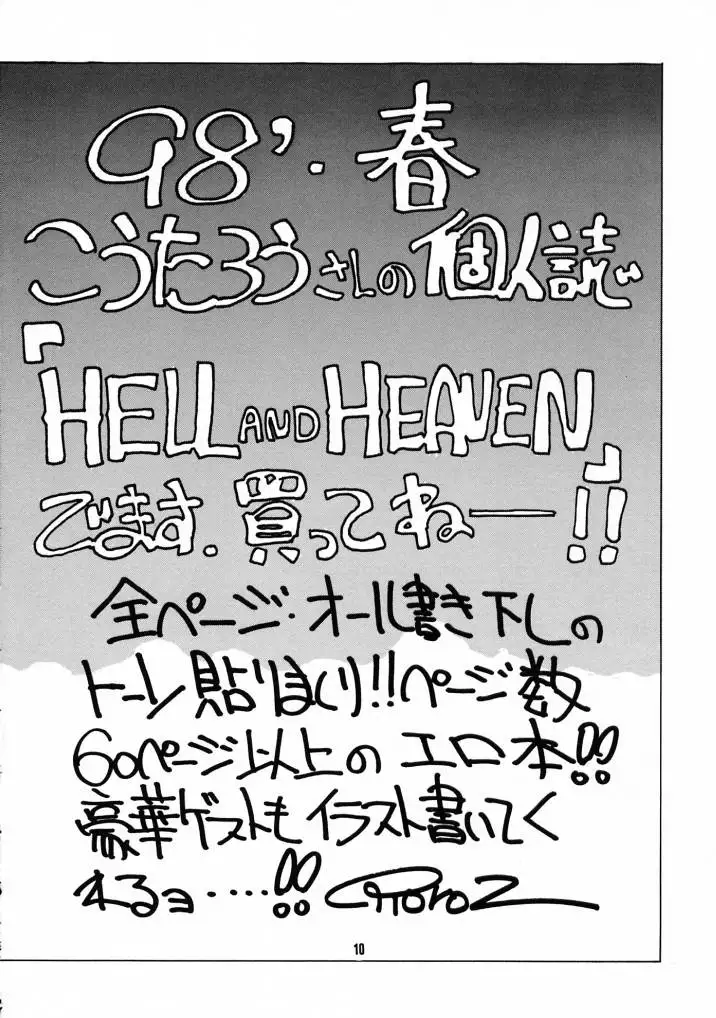 98'.春
こうたろうさんの個人誌
『HELL AND HEAVEN』
でます.買ってねー!!
全ページ・オール書き下しの
トーン貼りまくり!!ページ数
60ページ以上のエロ本!!
豪華ゲストもイラスト書いてく
れるョ‥‥!!
10